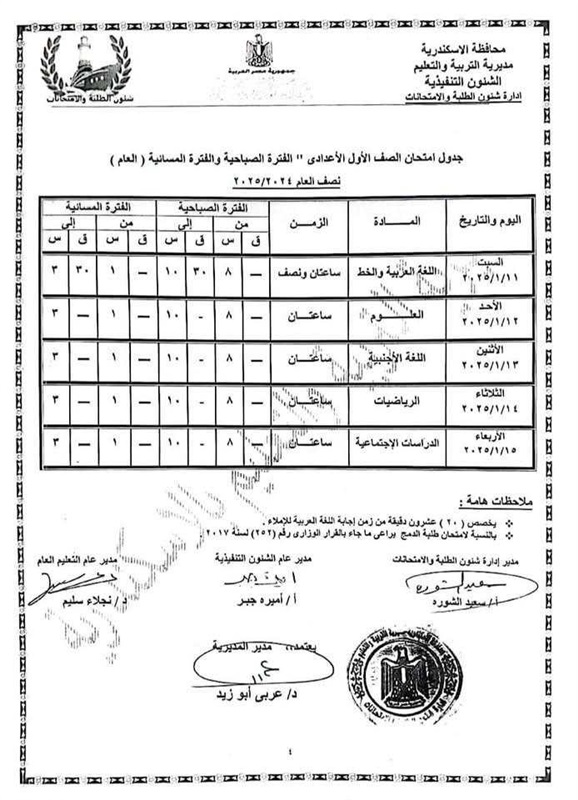 محافظة الاسكندرية
مديرية التربية والتعليم
الشئون التنفيذية
إدارة شئون الطلبة والامتحانات
جمهورية مصر العربية
شئون الطلبة والامتحانات
جدول امتحان الصف الأول الأعدادى " الفترة الصباحية والفترة المسائية ( العام )
نصف العام ٢٠٢٥/٢٠٢٤
اليوم والتاريخ المـــادة الزمـــن الفترة الصباحية الفترة المسائية
من إلى من إلى
ق س ق س ق س ق س
السبت ٢٠٢٥/١/١١ اللغة العربية والخط ساعتان ونصف — ٨ ٣٠ ١٠ — ١ ٣٠ ٣
الأحد ٢٠٢٥/١/١٢ العلـــوم ساعتـــان — ٨ - ١٠ — ١ — ٣
الأثنين ٢٠٢٥/١/١٣ اللغة الأجنبية ساعتـــان — ٨ - ١٠ — ١ — ٣
الثلاثاء ٢٠٢٥/١/١٤ الرياضيات ساعتـــان — ٨ - ١٠ — ١ — ٣
الأربعاء ٢٠٢٥/١/١٥ الدراسات الإجتماعية ساعتـــان — ٨ - ١٠ — ١ — ٣
ملاحظات هامة :
يخصص ( ٢٠ ) عشرون دقيقة من زمن إجابة اللغة العربية للإملاء .
بالنسبة لامتحان طلبة الدمج يراعى ما جاء بالقرار الوزارى رقم (٢٥٢) لسنة ٢٠١٧ .
مدير إدارة شئون الطلبة والامتحانات مدير عام الشئون التنفيذية مدير عام التعليم العام
أ/ سعيد الشوره أ/ أميره جبر د/ نجلاء سليم
يعتمد،، مدير المديرية
د/ عربى أبو زيد
٤